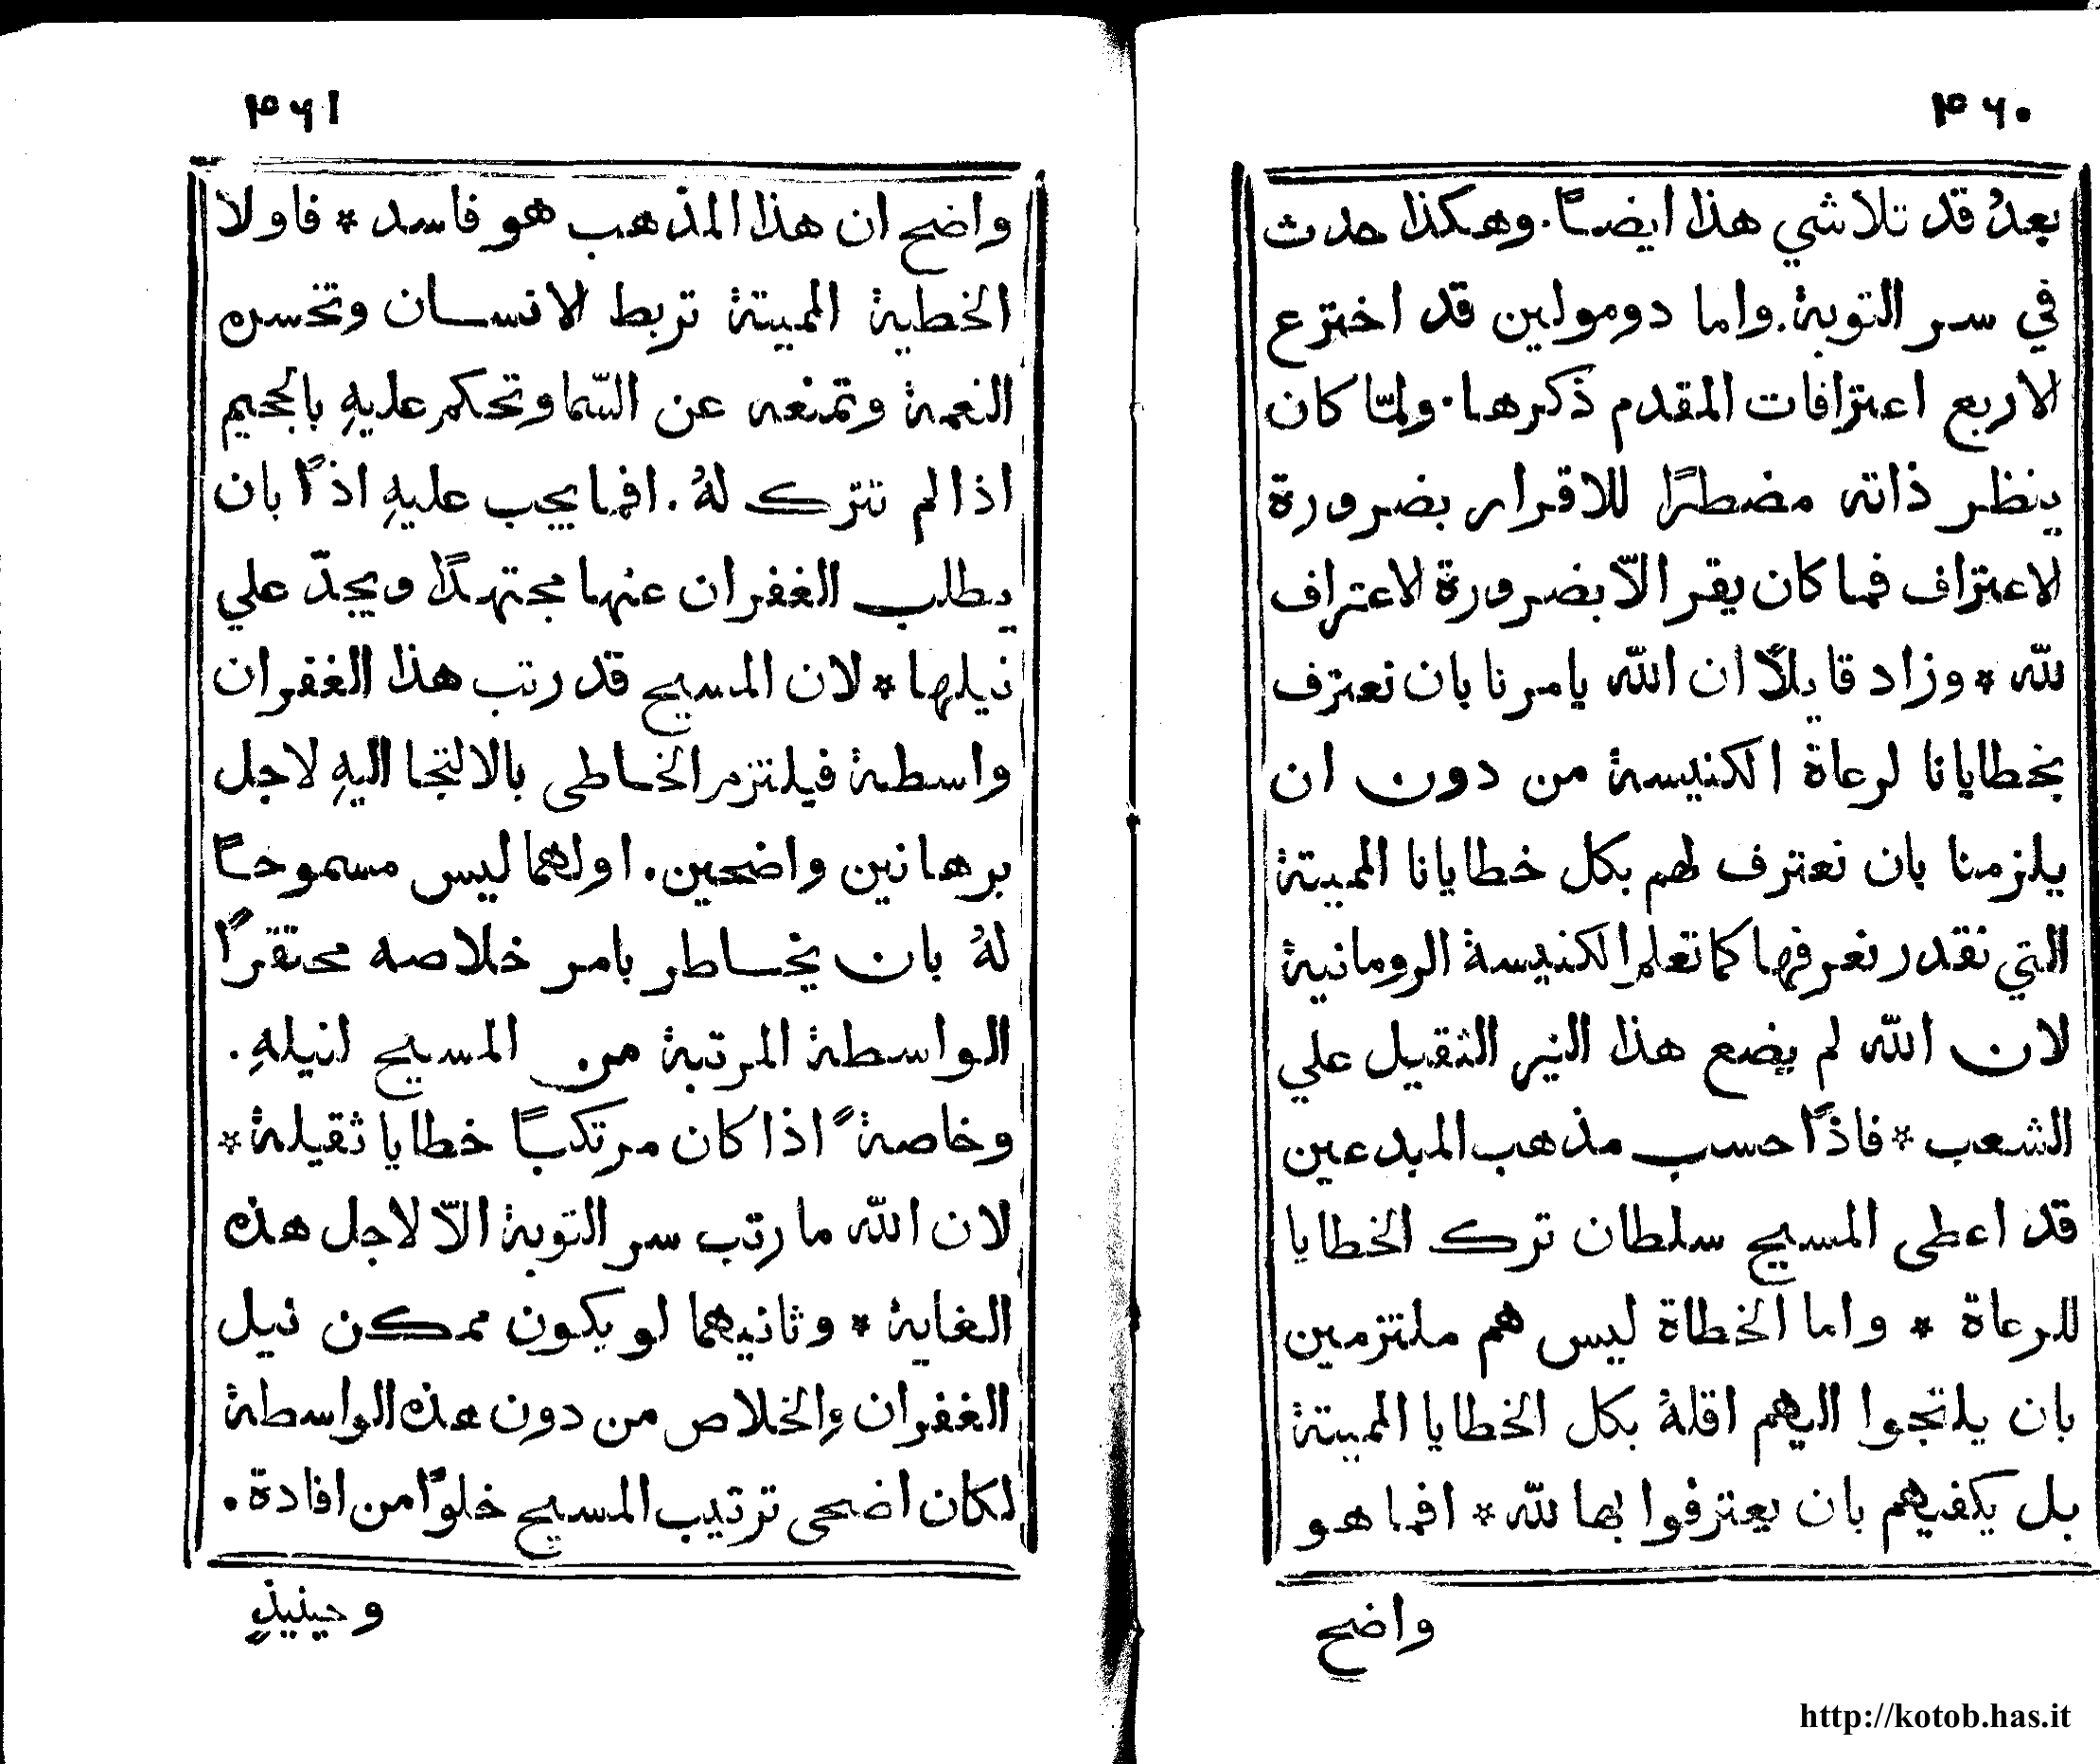 ٣٦٠
بعدُ قد تلاشي هذا ايضًا. وهكذا حدث
في سر التوبة. واما دومولين قد اخترع
الاربع اعترافات المقدم ذكرها. ولمّا كان
ينظر ذاته مضطرًا للاقرار بضرورة
الاعتراف فما كان يقر الّا بضرورة الاعتراف
للّه * وزاد قايلًا ان اللّه يامرنا بان نعترف
بخطايانا لرعاة الكنيسة من دون ان
يلزمنا بان نعترف لهم بكل خطايانا المميتة
التي نقدر نعرفها كما تعلم الكنيسة الرومانية
لان اللّه لم يضع هذا النير الثقيل علي
الشعب * فاذًا حسب مذهب المبدعين
قد اعطى المسيح سلطان ترك الخطايا
للرعاة * واما الخطاة ليس هم ملتزمين
بان يلتجوا اليهم اقلهُ بكل الخطايا المميتة
بل يكفيهم بان يعترفوا بها للّه * افما هو
واضح
٣٦١
واضح ان هذا المذهب هو فاسد * فاولا
الخطية المميتة تربط الانسان وتخسره
النعمة وتمنعه عن السّما وتحكم عليهِ بالجحيم
اذا لم تترك لهُ. افما يجب عليهِ اذًا بان
يطلب الغفران عنها مجتهدًا ويجدّ علي
نيلها * لان المسيح قد رتب هذا الغفران
واسطة فيلتزم الخاطى بالالتجا اليهِ لاجل
برهانين واضحين. اولهما ليس مسموحًا
لهُ بان يخاطر بامر خلاصه محتقرًا
الواسطة المرتبة من المسيح لنيلهِ.
وخاصةً اذا كان مرتكبًا خطايا ثقيلة *
لان اللّه ما رتب سر التوبة الّا لاجل هذه
الغاية * وثانيهما لو يكون ممكن نيل
الغفران والخلاص من دون هذه الواسطة
لكان اضحى ترتيب المسيح خلوًا من افادة.
وحينيذٍ
http://kotob.has.it